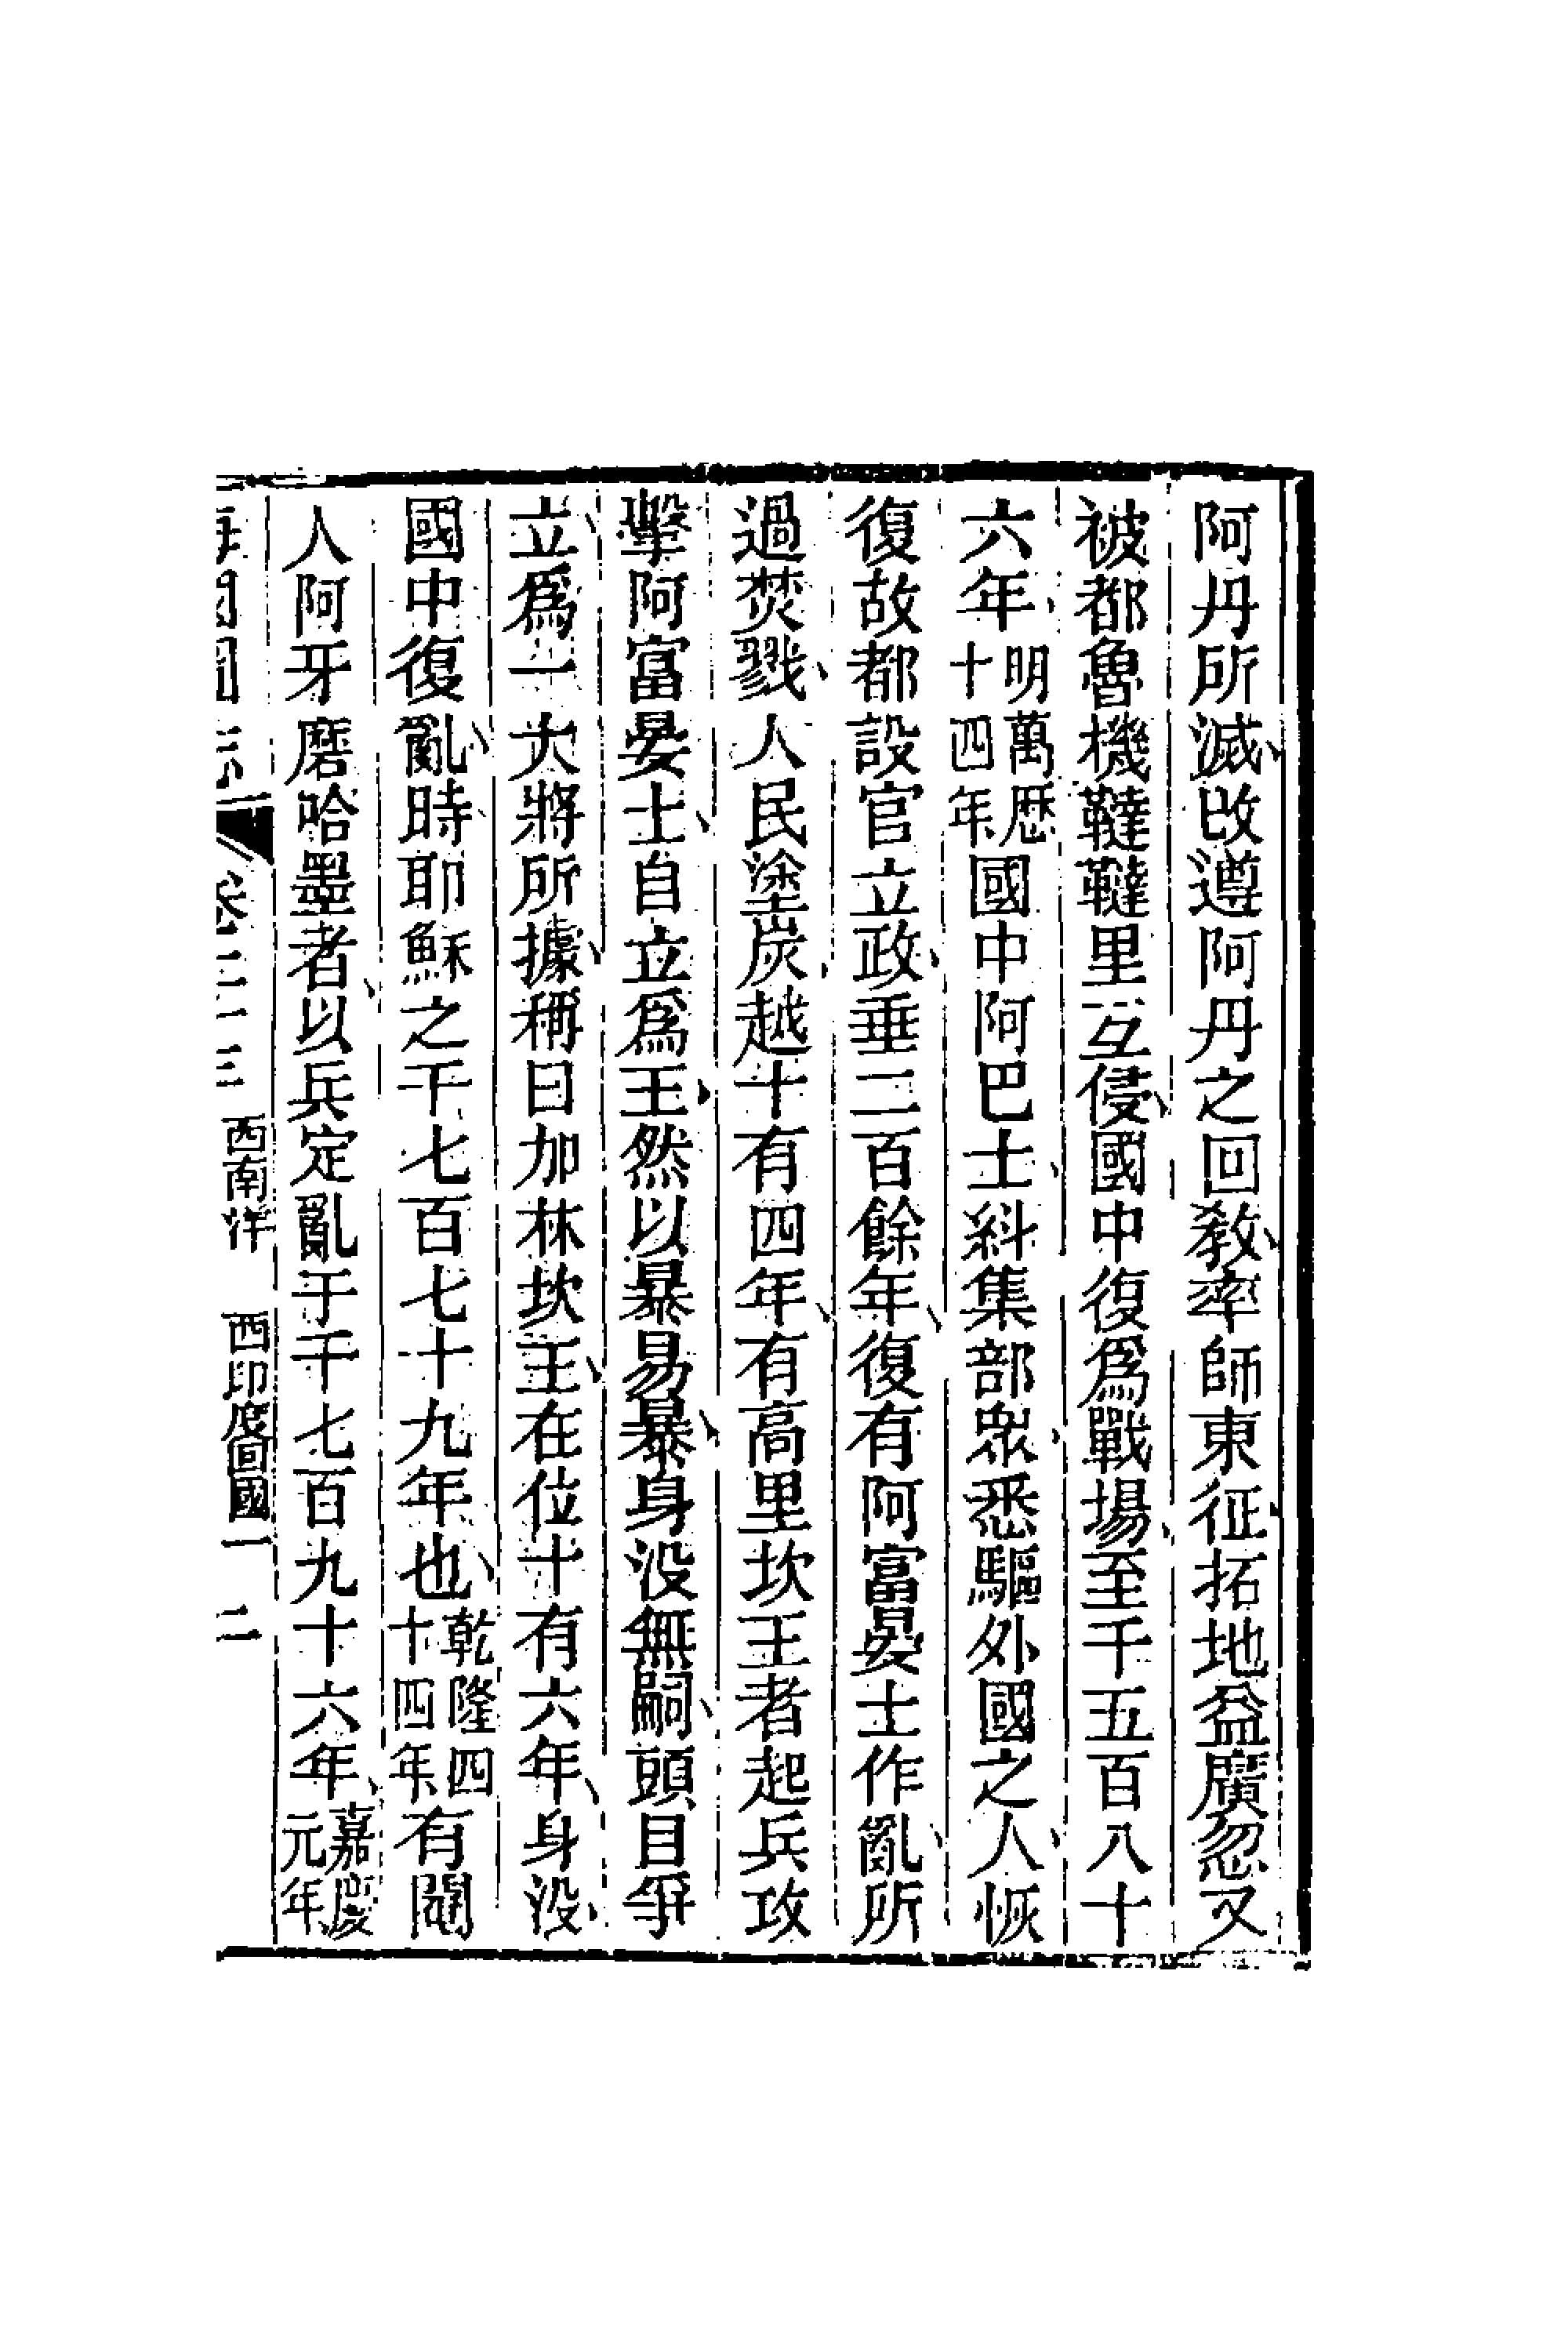 阿丹所滅改遵阿丹之回教率師東征拓地益廣忽又
被都魯機韃韃里互侵國中復爲戰場至千五百八十
六年明萬歷十四年國中阿巴士糾集部眾悉驅外國之人恢
復故都設官立政垂二百餘年復有阿富晏士作亂所
過焚戮人民塗炭越十有四年有高里坎王者起兵攻
擊阿富晏士自立爲王然以暴易暴身没無嗣頭目爭
立爲一大將所據稱曰加林坎王在位十有六年身没
國中復亂時耶穌之千七百七十九年也乾隆四十四年有閹
人阿牙磨哈墨者以兵定亂于千七百九十六年嘉慶元年
海國圖志 卷二十三 西南洋 西印度回國一 二